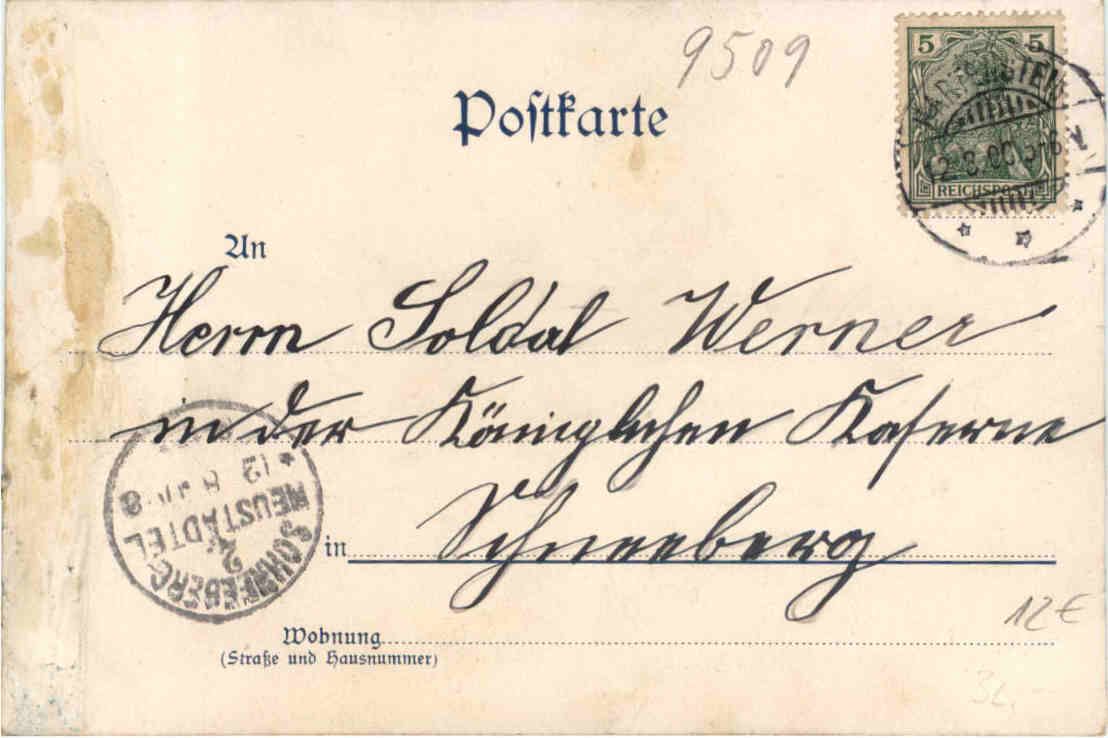 9509
Postkarte
5 5
REICHSPOST
12.8.00 5-6
An
Herrn Soldat Werner
in der Königlichen Kaserne
in Schneeberg
SCHNEEBERG
NEUSTÄDTEL
2
12 8
Wohnung
(Straße und Hausnummer)
12 €